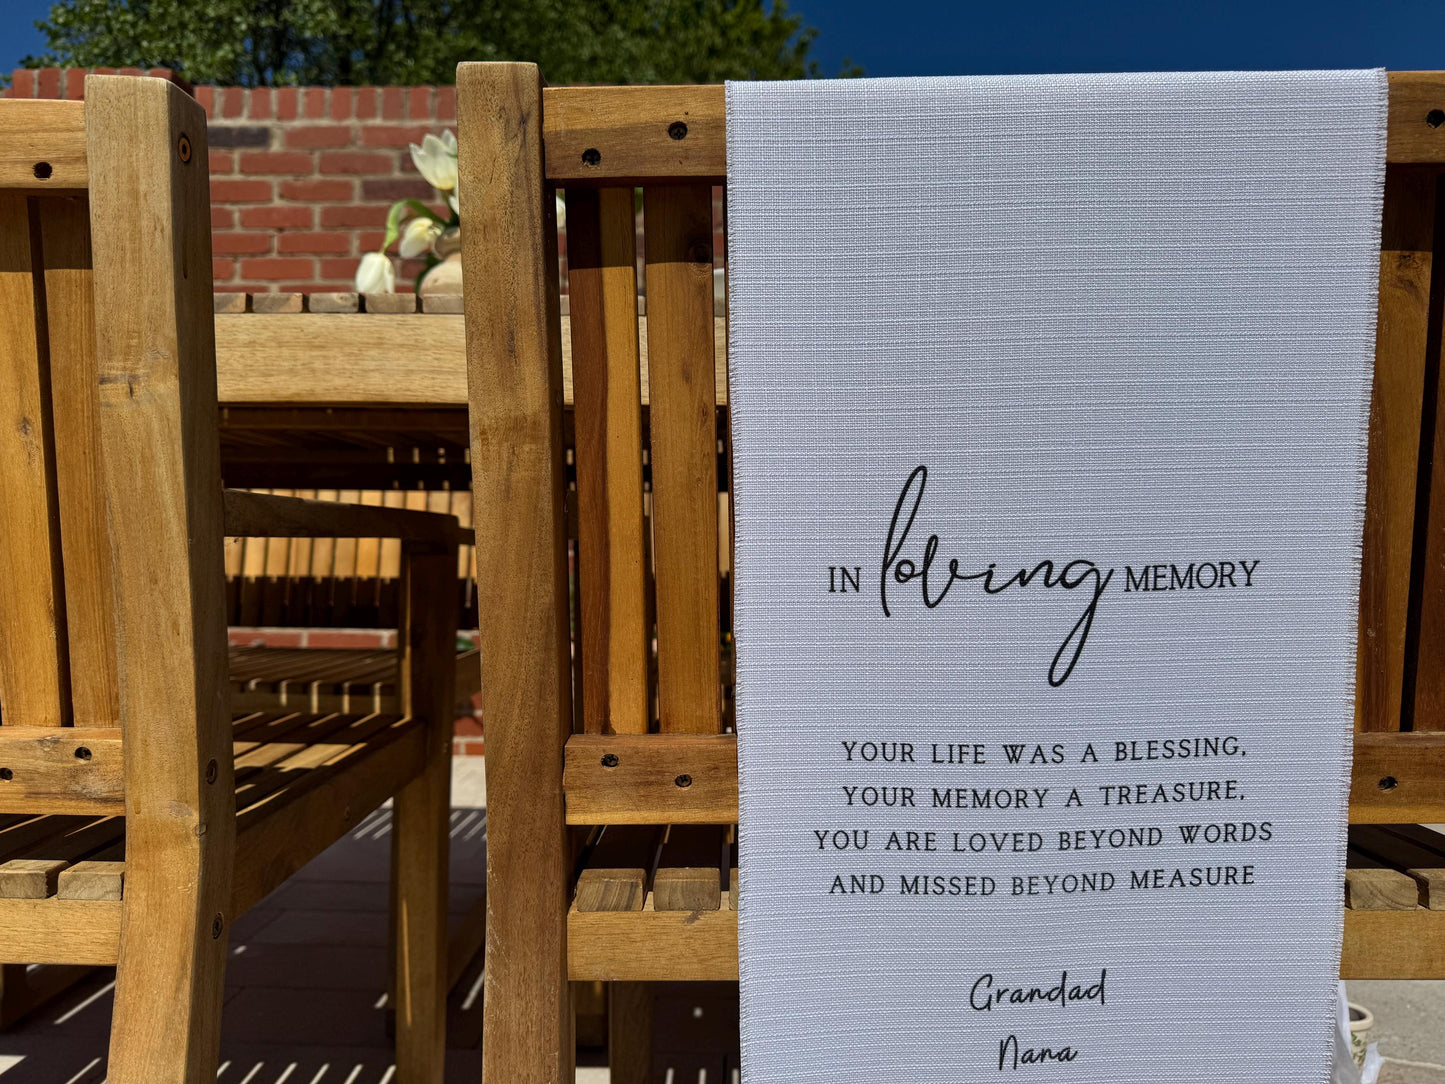 IN loving MEMORY
YOUR LIFE WAS A BLESSING,
YOUR MEMORY A TREASURE,
YOU ARE LOVED BEYOND WORDS
AND MISSED BEYOND MEASURE
Grandad
Nana